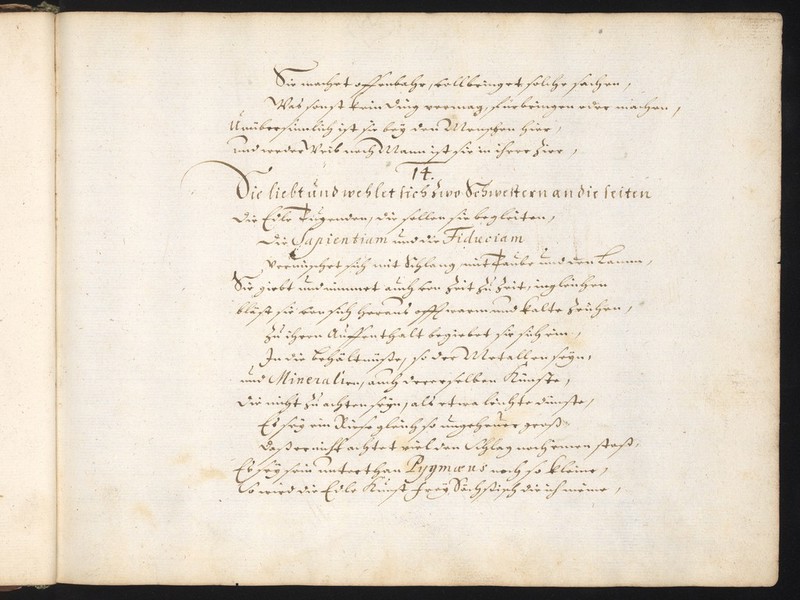 Sie machet offenbahr, vollbringet solche sachen,
Was sonst kein ding vermag, fürbringen oder machen,
Unübersinnlich ist sie beÿ den Menschen hier,
und weder Weib noch Mann ist sie in ihrer Zier,
14.
Sie liebt und wehlet sich Zwo Schwestern an die seiten
Die Edle Tugenden, die sollen sie begleiten,
Die Sapientiam und die Fiduciam
vermischet sich mit Schlang mit Taube und dem Lamm,
Sie giebt und nimmet auch von Zeit Zu Zeit, ingleichen
bläst sie von sich heraus offt warm und kalte Zeichen,
Zu ihren Auffenthalt begiebet sie sich ein,
In die behältnüße, so der Metallen seÿn,
und Mineralien, auch derer selben Künste,
Die nicht Zu achten seÿn, als etwa leichte dünste,
Es seÿ ein Riese gleich so ungeheuer groß
Daß er nicht achtet viel den Schlag noch einen stoß,
Es seÿ sein unterthan Pygmæus noch so kleine,
So wird die Edle Kunst freÿ Sächsisch die ich meine,